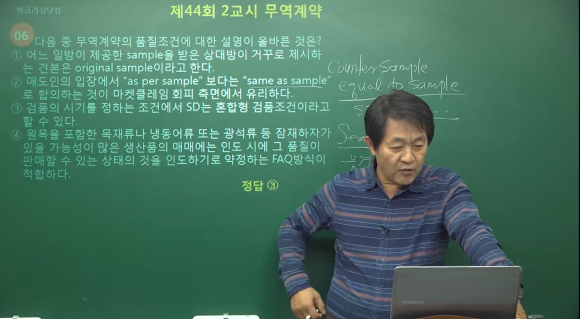 제44회 2교시 무역계약
06 다음 중 무역계약의 품질조건에 대한 설명이 올바른 것은?
① 어느 일방이 제공한 sample을 받은 상대방이 거꾸로 제시하
는 견본은 original sample이라고 한다.
② 매도인의 입장에서 “as per sample” 보다는 “same as sample”
로 합의하는 것이 마켓클레임 회피 측면에서 유리하다.
③ 검품의 시기를 정하는 조건에서 SD는 혼합형 검품조건이라고
할 수 있다.
④ 원목을 포함한 목재류나 냉동어류 또는 광석류 등 잠재하자가
있을 가능성이 많은 생산품의 매매에는 인도 시에 그 품질이
판매할 수 있는 상태의 것을 인도하기로 약정하는 FAQ방식이
적합하다.
정답 ③
Counter Sample
equal to Sample